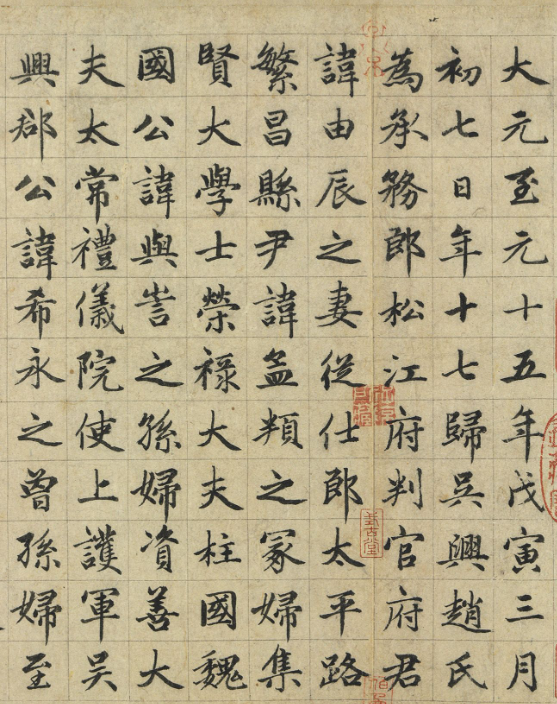 大元至元十五年戊寅三月
初七日年十七歸吳興趙氏
為承務郎松江府判官府君
諱由辰之妻從仕郎太平路
繁昌縣尹諱孟頖之冢婦集
賢大學士榮祿大夫柱國魏
國公諱與訔之孫婦資善大
夫太常禮儀院使上護軍吳
興郡公諱希永之曾孫婦至